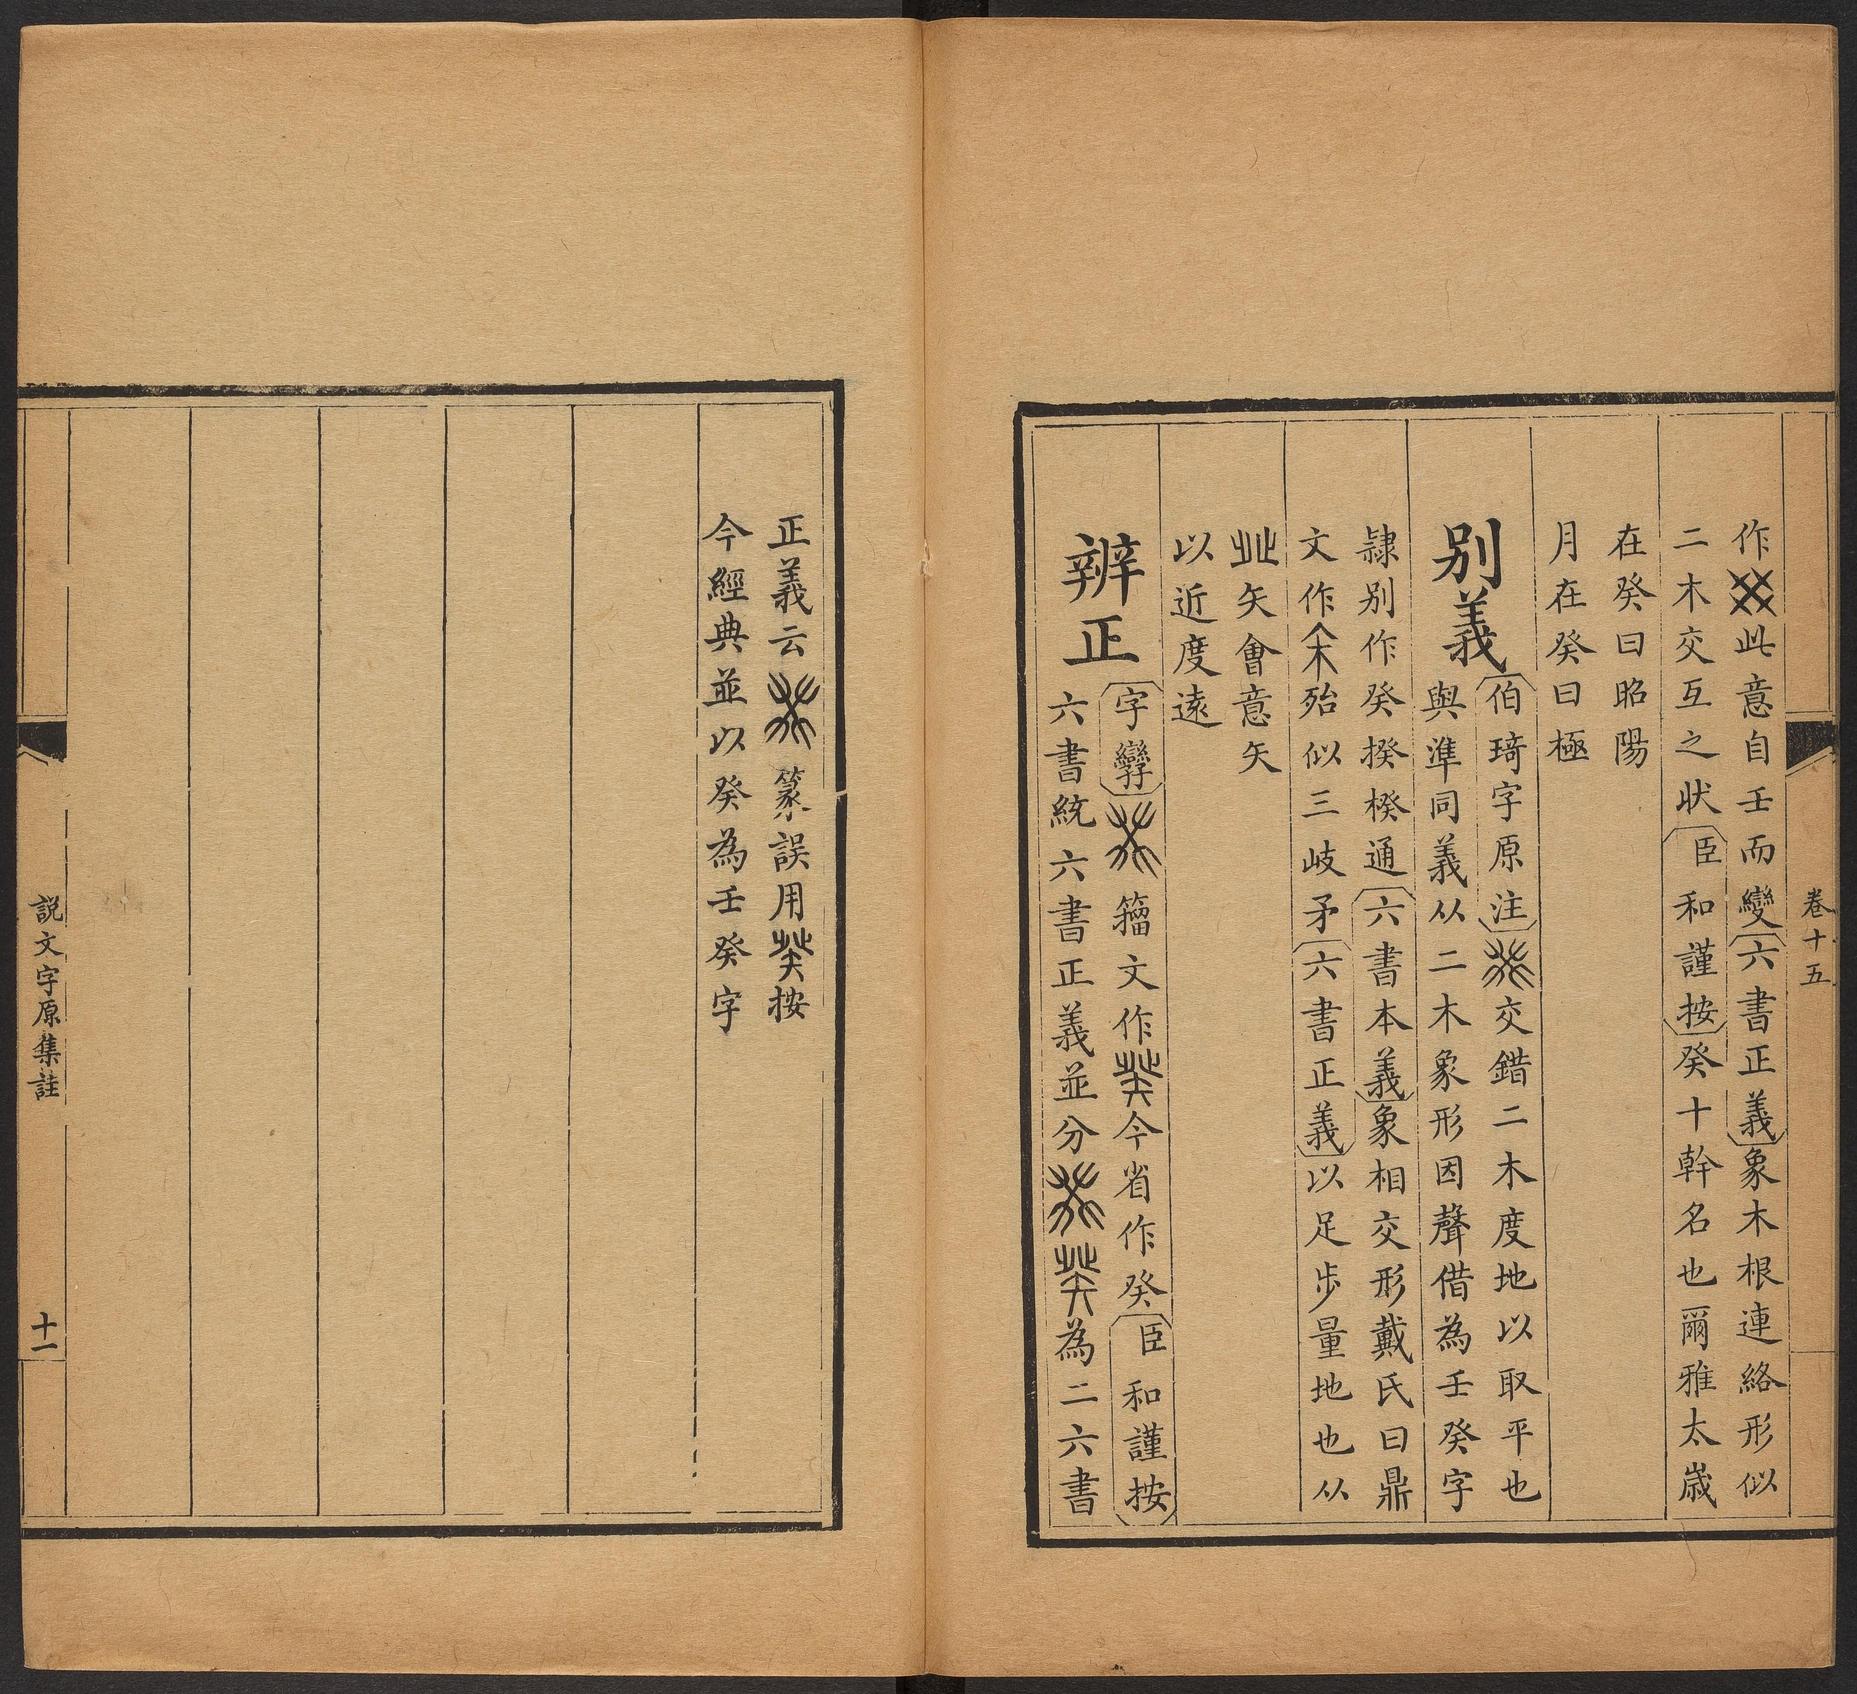 卷十五
作此意自壬而變六書正義象木根連絡形似
二木交互之狀臣和謹按癸十幹名也爾雅太歲
在癸曰昭陽
月在癸曰極
別義
伯琦字原注交錯二木度地以取平也
與準同義从二木象形因聲借為壬癸字
隸別作癸揆楑通六書本義象相交形戴氏曰鼎
文作殆似三歧矛六書正義以足步量地也从
矢會意矢
以近度遠
辨正
字孿籀文作今省作癸臣和謹按
六書統六書正義並分為二六書
正義云篆誤用按
今經典並以癸為壬癸字
說文字原集註
十一